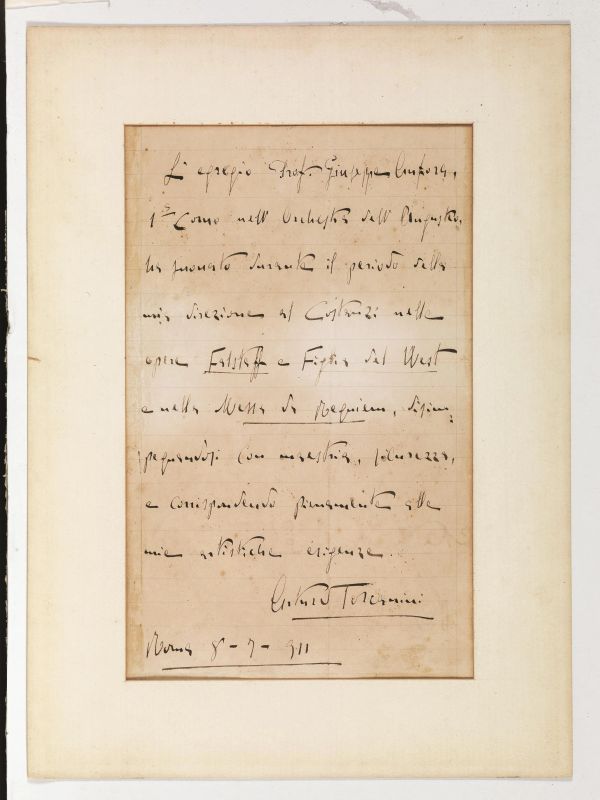 L'egregio Prof. Giuseppe
1º Corno nell'Orchestra dell'Augusteo,
ha suonato durante il periodo della
mia direzione al Costanzi nelle
opere Falstaff e Figlia del West
e nella Messa da Requiem, disim-
pegnandosi con maestria, sicurezza,
e corrispondendo pienamente alle
mie artistiche esigenze.
Arturo Toscanini
Roma 8-7-911